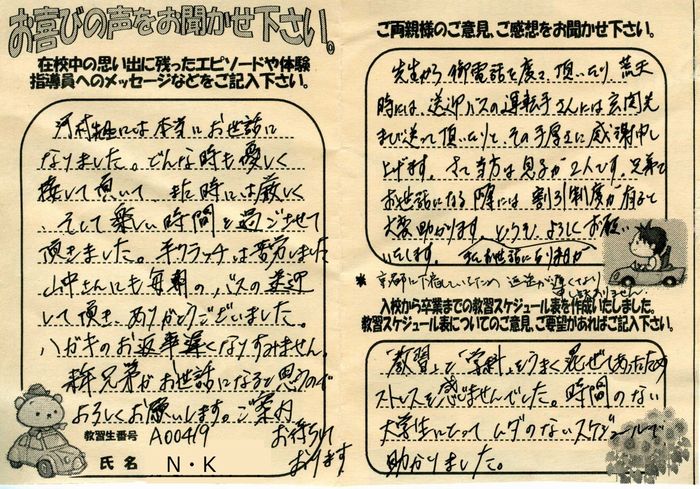 お喜びの声をお聞かせ下さい。
在校中の思い出に残ったエピソードや体験
指導員へのメッセージなどをご記入下さい。
河村先生には本当にお世話に
なりました。どんな時も優しく
接して頂いて また時には厳しく
そして楽しい時間を過ごさせて
頂きました。半クラッチは苦労しました
山中さんにも毎朝のバスの送迎
して頂き ありがとうございました。
ハガキのお返事遅くなりすみません。
来年兄弟がお世話になると思うので
よろしくお願いします。ご案内
お待ちして
おります
教習生番号 A00419
氏名 N・K
ご両親様のご意見、ご感想をお聞かせ下さい。
先生から御電話を度々頂いたり、荒天
時には、送迎バスの運転手さんには玄関先
まで送って頂いたりと、その手厚さに感謝申し
上げます。さて当方は息子が2人です。兄弟で
お世話になる際には割引制度が有ると
大変助かります。どうぞ、よろしくお願い
いたします。
入校から卒業までの教習スケジュール表を作成いたしました。
教習スケジュール表についてのご意見、ご要望があればご記入下さい。
"教習"と"学科"をうまく混ぜてあったため
ストレスを感じませんでした。時間のない
大学生にとって ムダのないスケジュールで
助かりました。